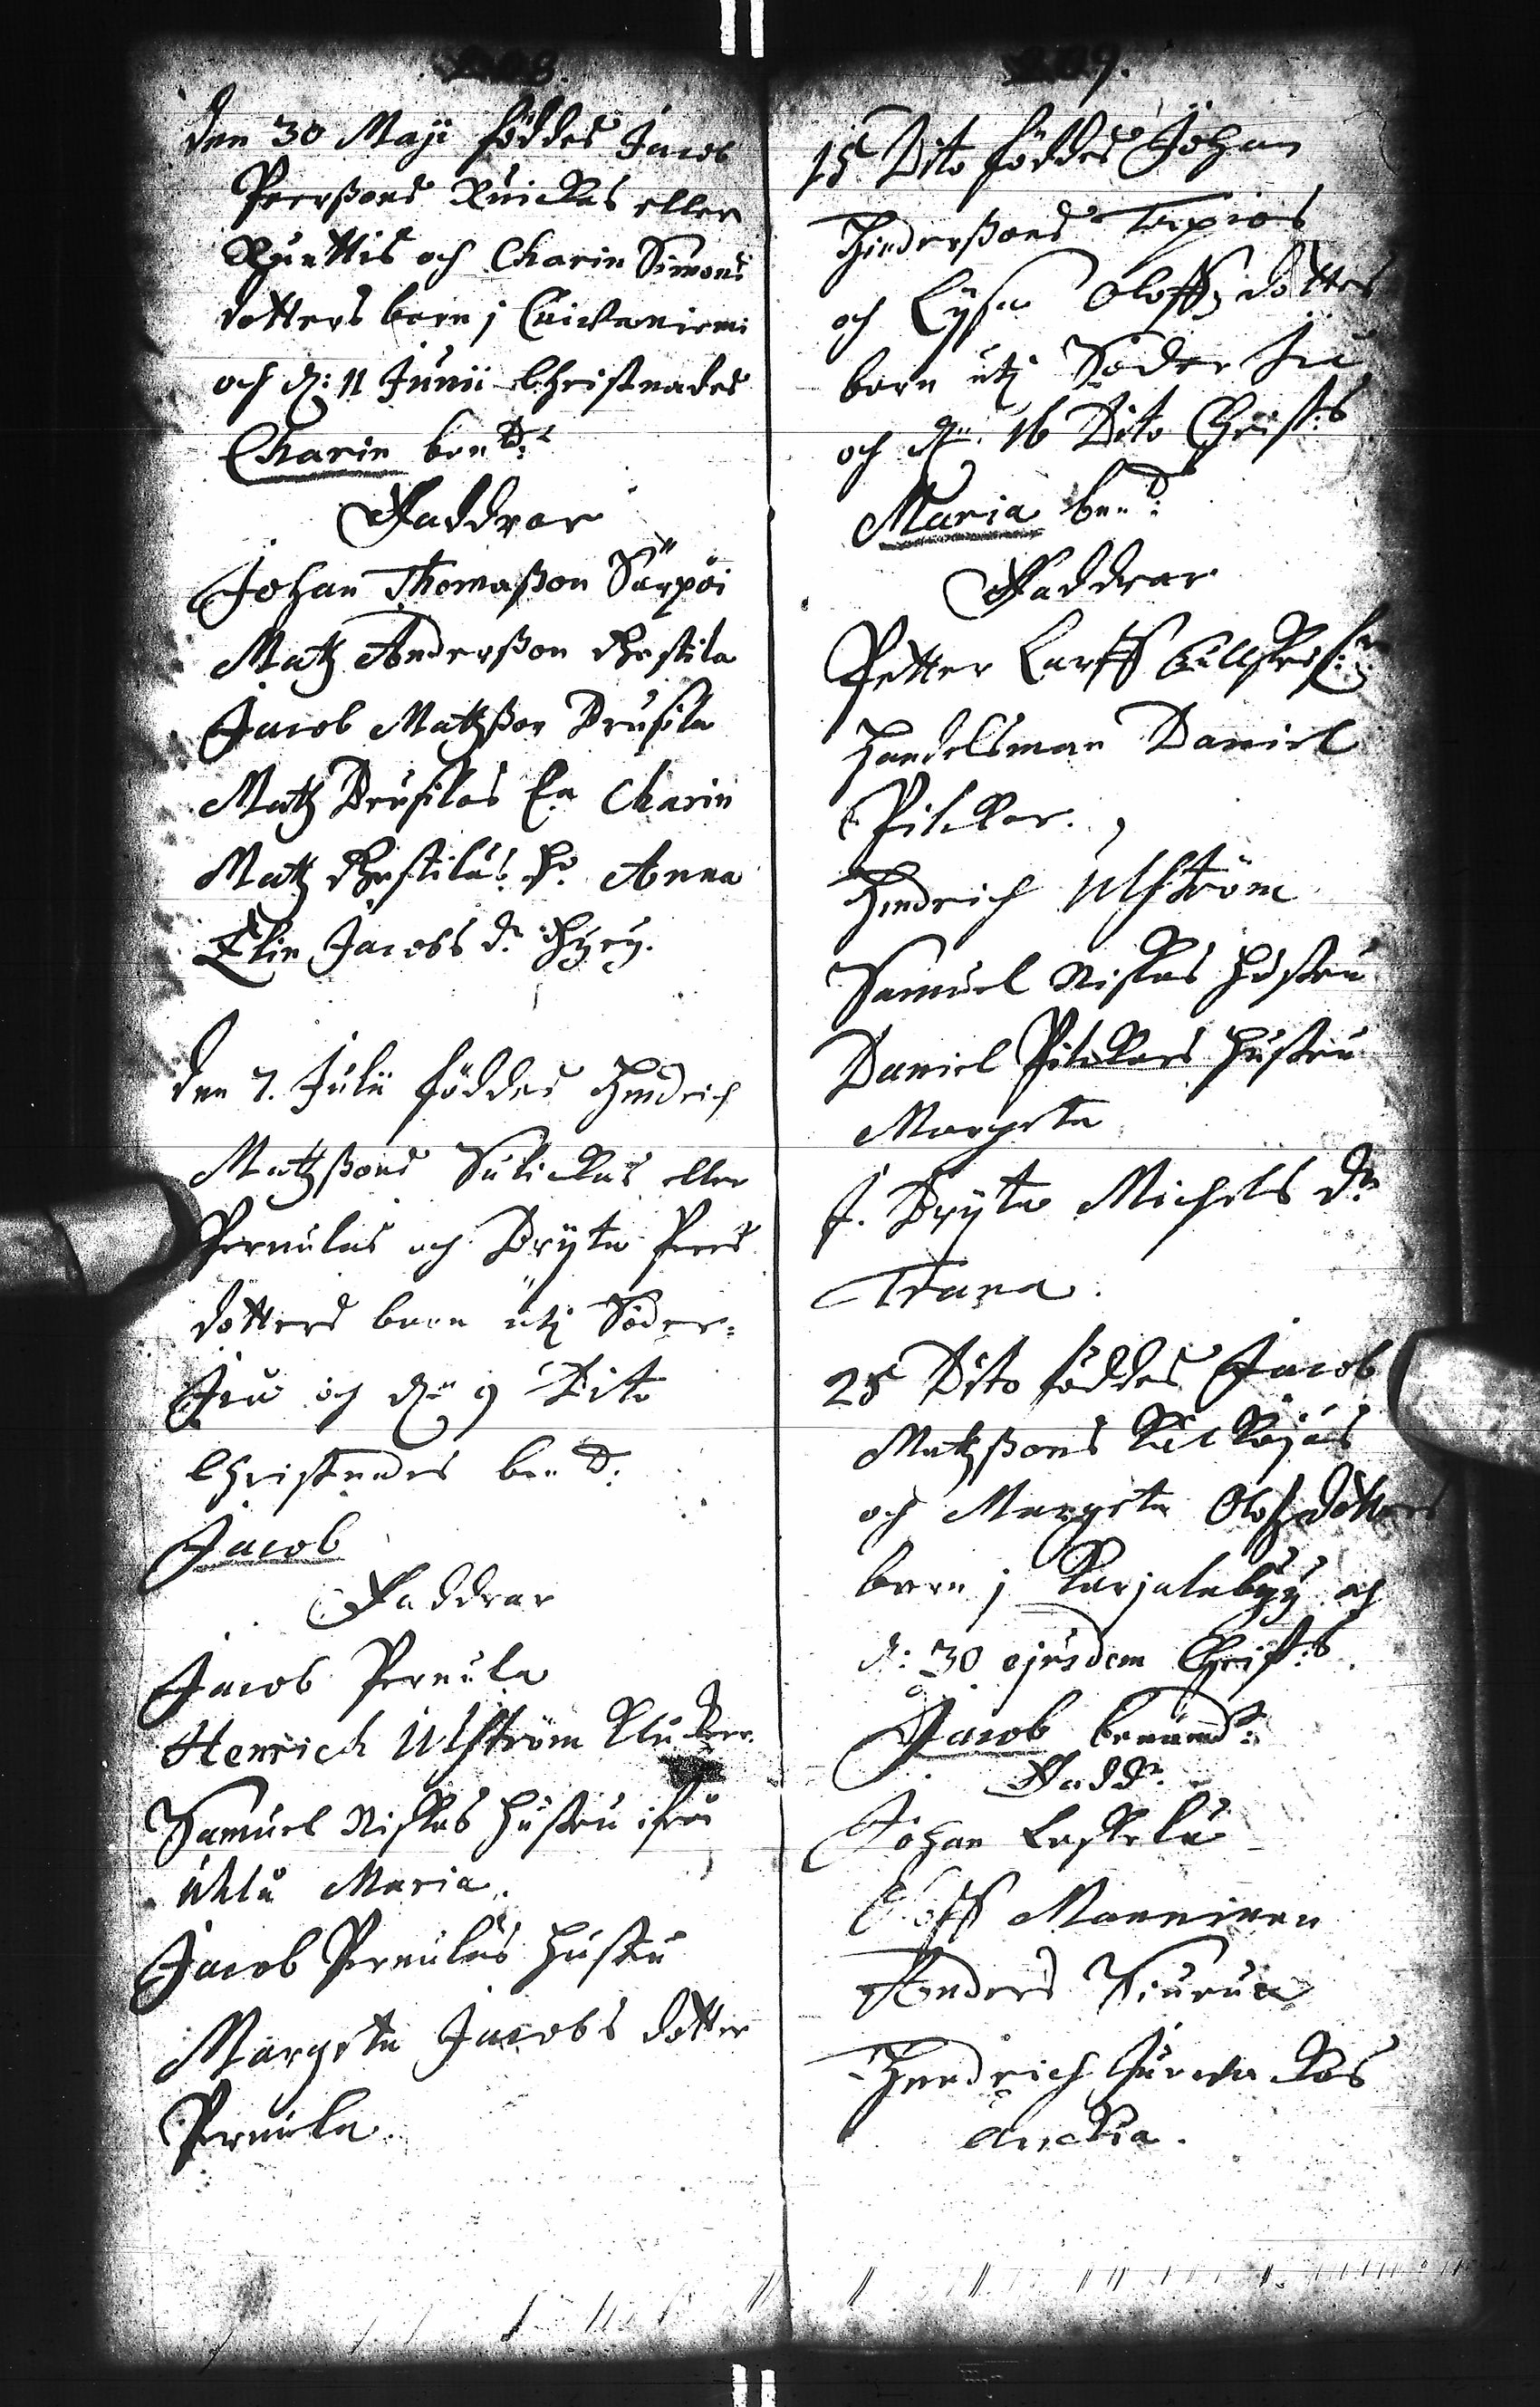 208.
den 30 Maji föddes Jacob
Peerßons Kuickas eller
Kunttis och Charin Simons
dotters barn j Cuivaniemi
och d: 11 Junii Christnades
Charin ben:d
Faddrar
Johan Thomaßon Särpöi
Matz Anderßon Hestila
Jacob Matzßon Brusila
Matz Brusilas En Charin
Matz Hestilas h. Anna
Elin Jacobs d.
den 7. Julii föddes Hindrich
Matzßons Sulickas eller
Pernulas och Bryta Peers
dotters barn utj Söder=
Jiu och d: 9 Dito
Christnades ben d:
Jacob
Faddrar
Jacob Pernula
Henrich Ulhström Klockar
Samuel Niskas hustru ifrån
Uhlu Maria.
Jacob Pernulas hustru
Margeta Jacobs dotter
Pernula.
209.
15 Dito föddes Johan
Hinderßons Tapios
och Lysa Oloffz dotters
barn utj Söder Jiu
och d: 16 Dito Christ:s
Maria ben:d
Faddrar
Petter Larss
Handelsman Daniel
Pilckar.
Hindrich Ulhström
Samuel Niskas hustru
Daniel Pilckars hustru
Margeta
J. Bryta Michels d:r
Trana.
25 Dito föddes Jacob
Matzßons Kulckojas
och Margeta Olofzdotters
barn j Karjalakyy och
d: 30 ejusdem Christ:s
Jacob benämd:
Fadd:r
Johan Laskela
Oloff Manninen
Anders Siurua
Hendrich Jurvackas
Änckia.